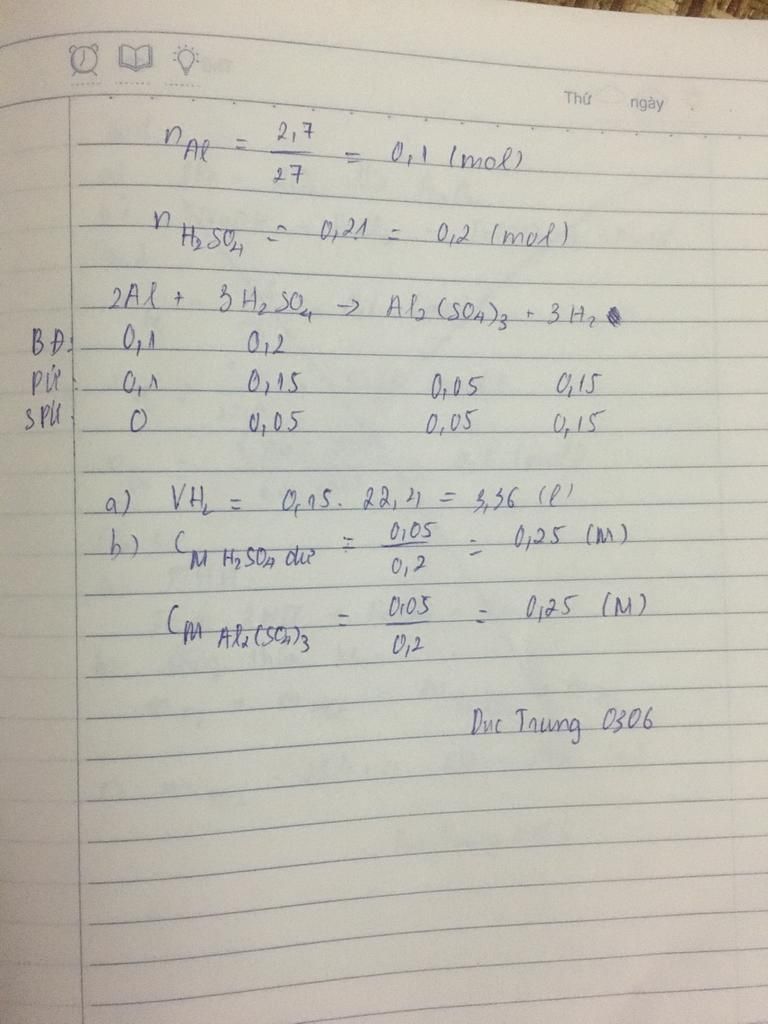 Thứ ngày
n Al = 2,7 / 27 = 0,1 (mol)
n H₂SO₄ = 0,2.1 = 0,2 (mol)
2Al + 3H₂SO₄ → Al₂(SO₄)₃ + 3H₂
BĐ: 0,1 0,2
PƯ: 0,1 0,15 0,05 0,15
SPƯ: 0 0,05 0,05 0,15
a) VH₂ = 0,15. 22,4 = 3,36 (l)
b) CM H₂SO₄ dư = 0,05 / 0,2 = 0,25 (M)
CM Al₂(SO₄)₃ = 0,05 / 0,2 = 0,25 (M)
Duc Trung 0306